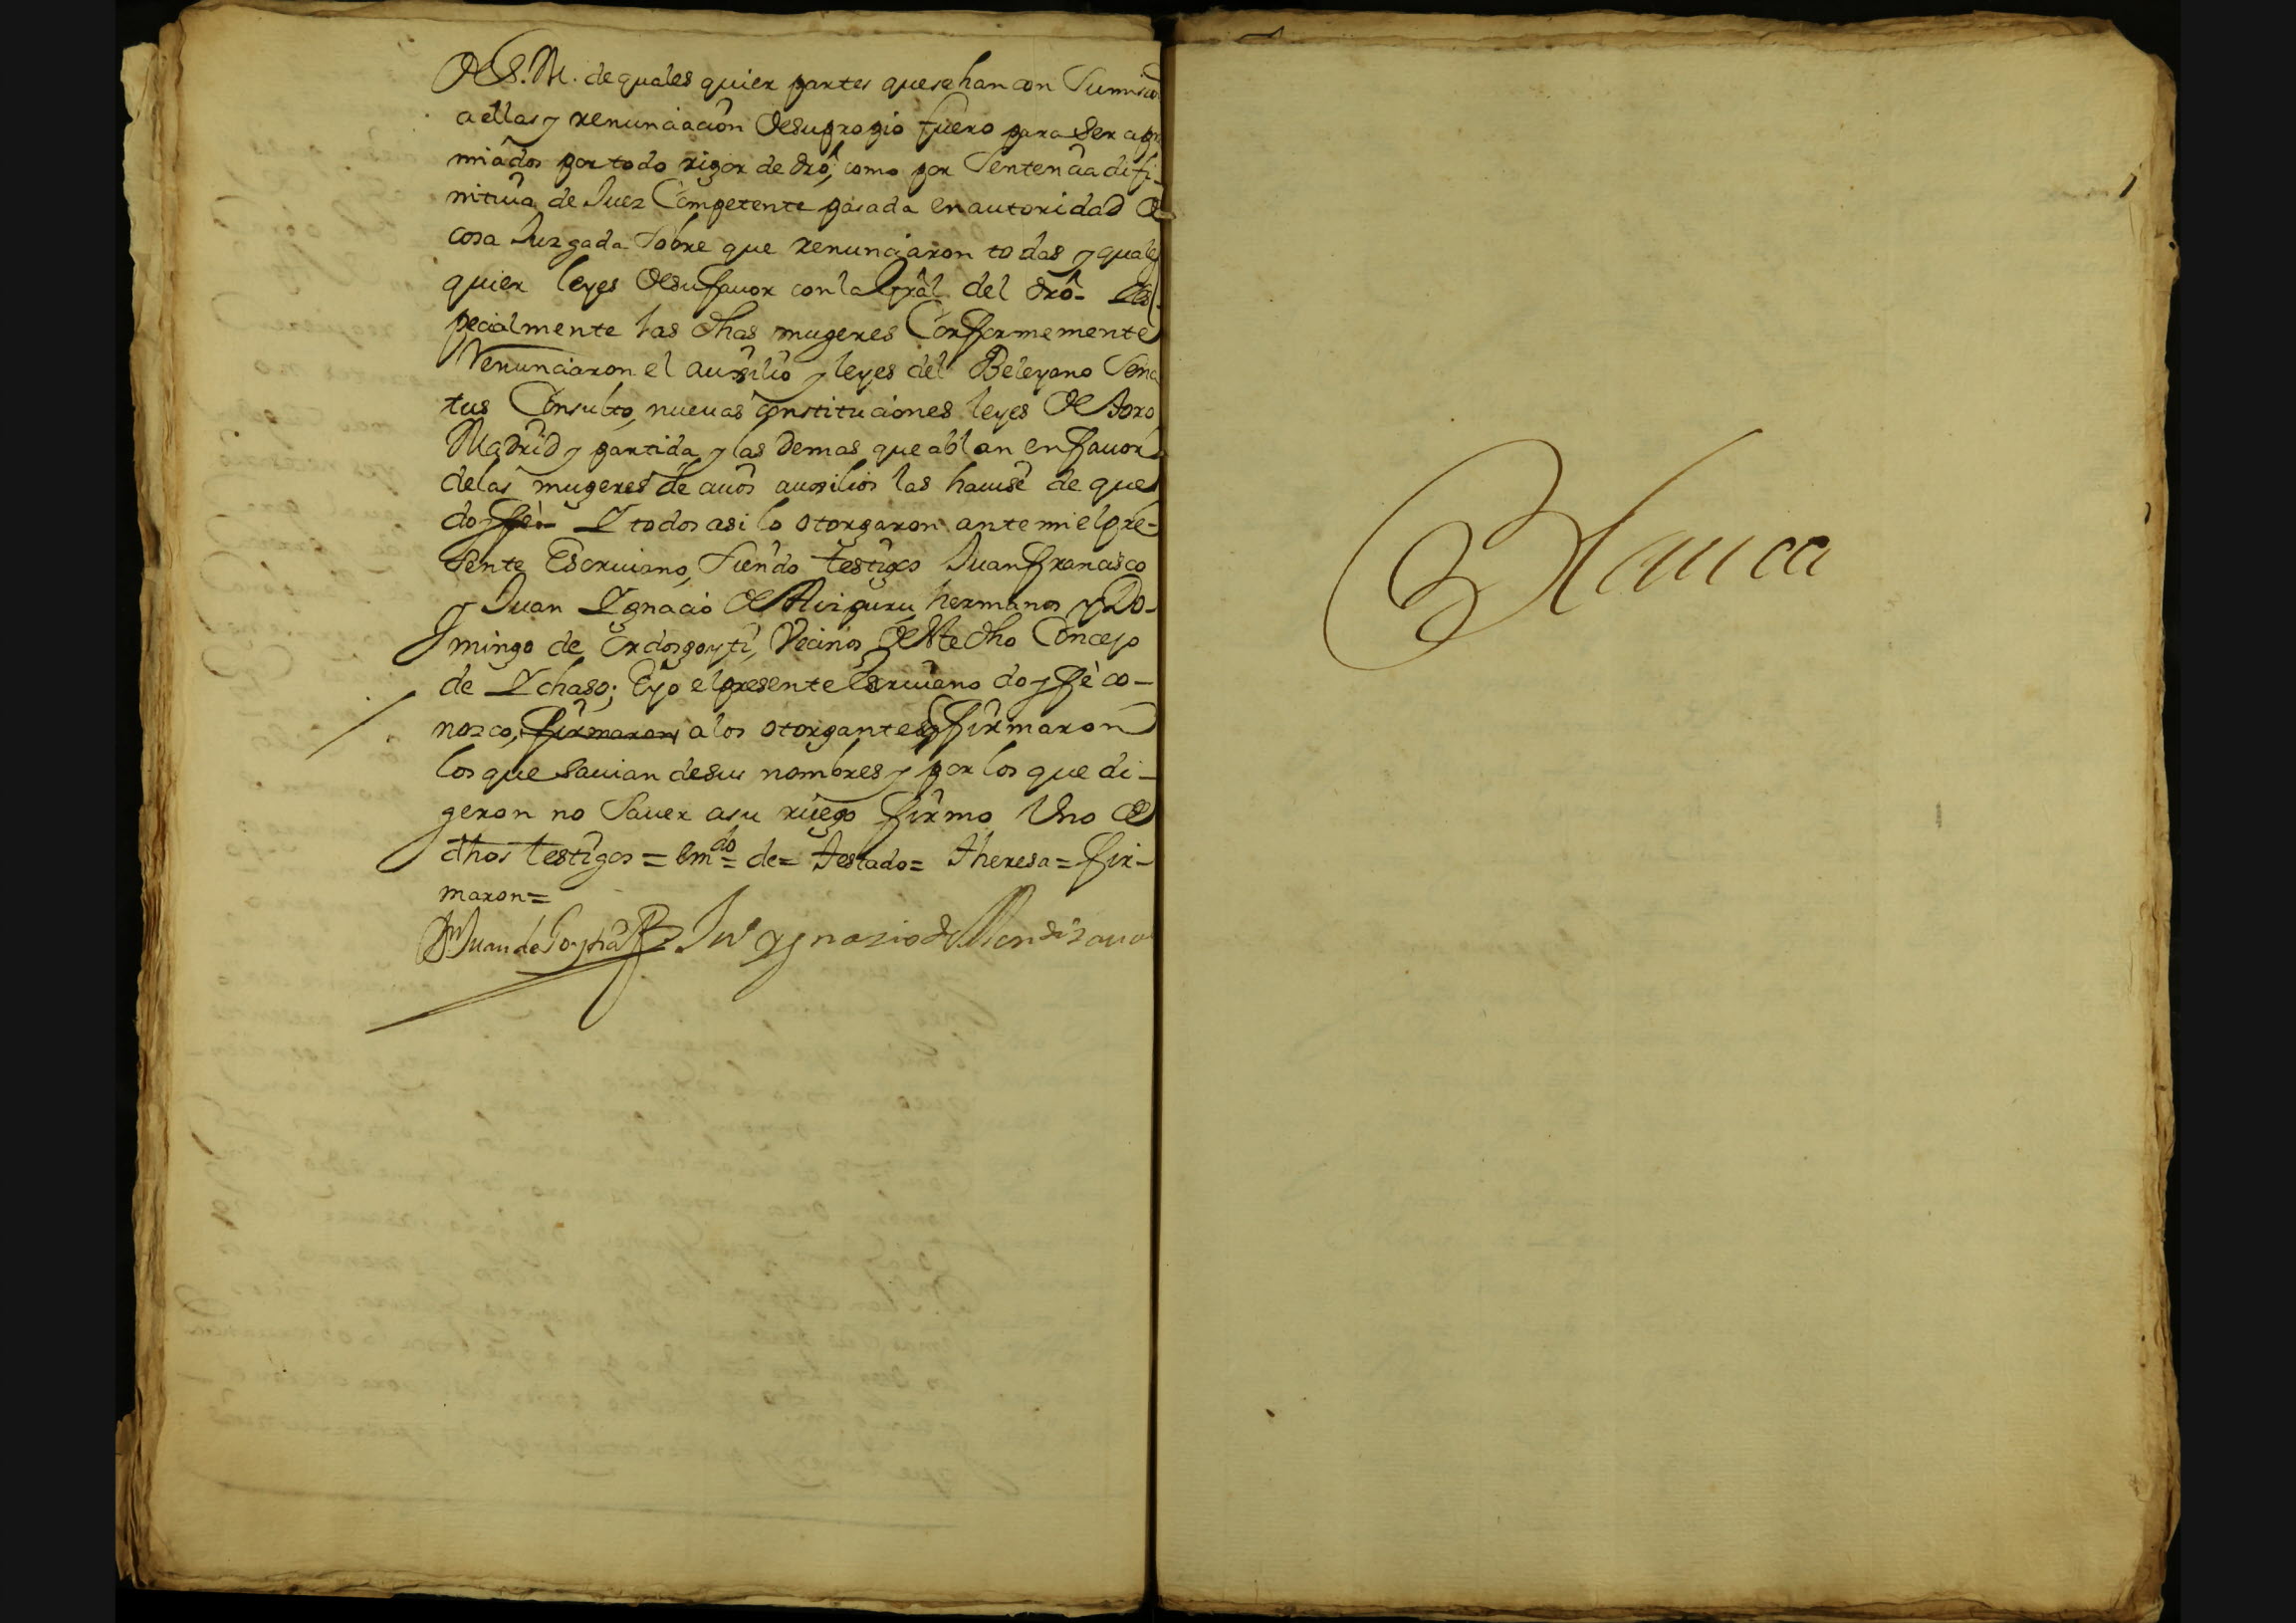 de S. M. de quales quier partes que se han con Sumisio
a ellas y renunciacion de su propio fuero para ser apre
miados por todo rigor de dro, como por Sentencia difi-
nitiua de Juez Competente pasada en autoridad de
cosa Juzgada Sobre que renunciaron todas y quales
quier leyes de su fauor con la Gral del dro- Y es-
pecialmente las dhas mugeres Conformemente
Renunciaron el auxilio y leyes del Beleyano Sena
tus Consulto, nueuas constituciones leyes de toro
Madrid y partida y las demas que ablan en fauor
de las mugeres de cuios auxilios las hauise de que
doy fe- Y todos asi lo otorgaron ante mi el pre-
sente Escriuano, Siendo testigos Juan Francisco
y Juan Ygnacio de Aizpuru hermanos y Do-
mingo de Ordosgoyti, Vecinos de dho Concejo
de Ychaso; E yo el presente Escriuano doy fè co-
nozco, firmaron a los otorgantes y firmaron
los que sauian de sus nombres y por los que di-
geron no Sauer a su ruego firmo Uno de
dhos testigos = Em.do = de = testado = Theresa = fir-
maron =
Juan de Goytia Jn Ygnazio de Mendizaual
Blanca